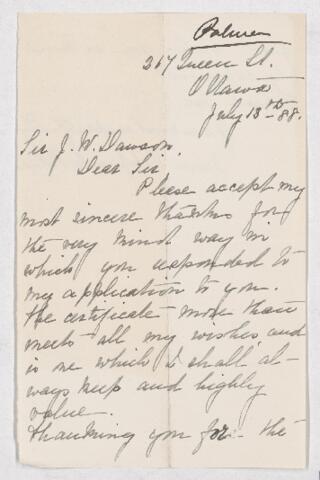 Palmer
367 Queen St.
Ottawa
July 13th - 88.
Sir J. W. Dawson,
Dear Sir,
Please accept my
most sincere thanks for
the very kind way in
which you responded to
my application to you.
The certificate more than
meets all my wishes and
is one which I shall al-
ways keep and highly
value.
Thanking you for the